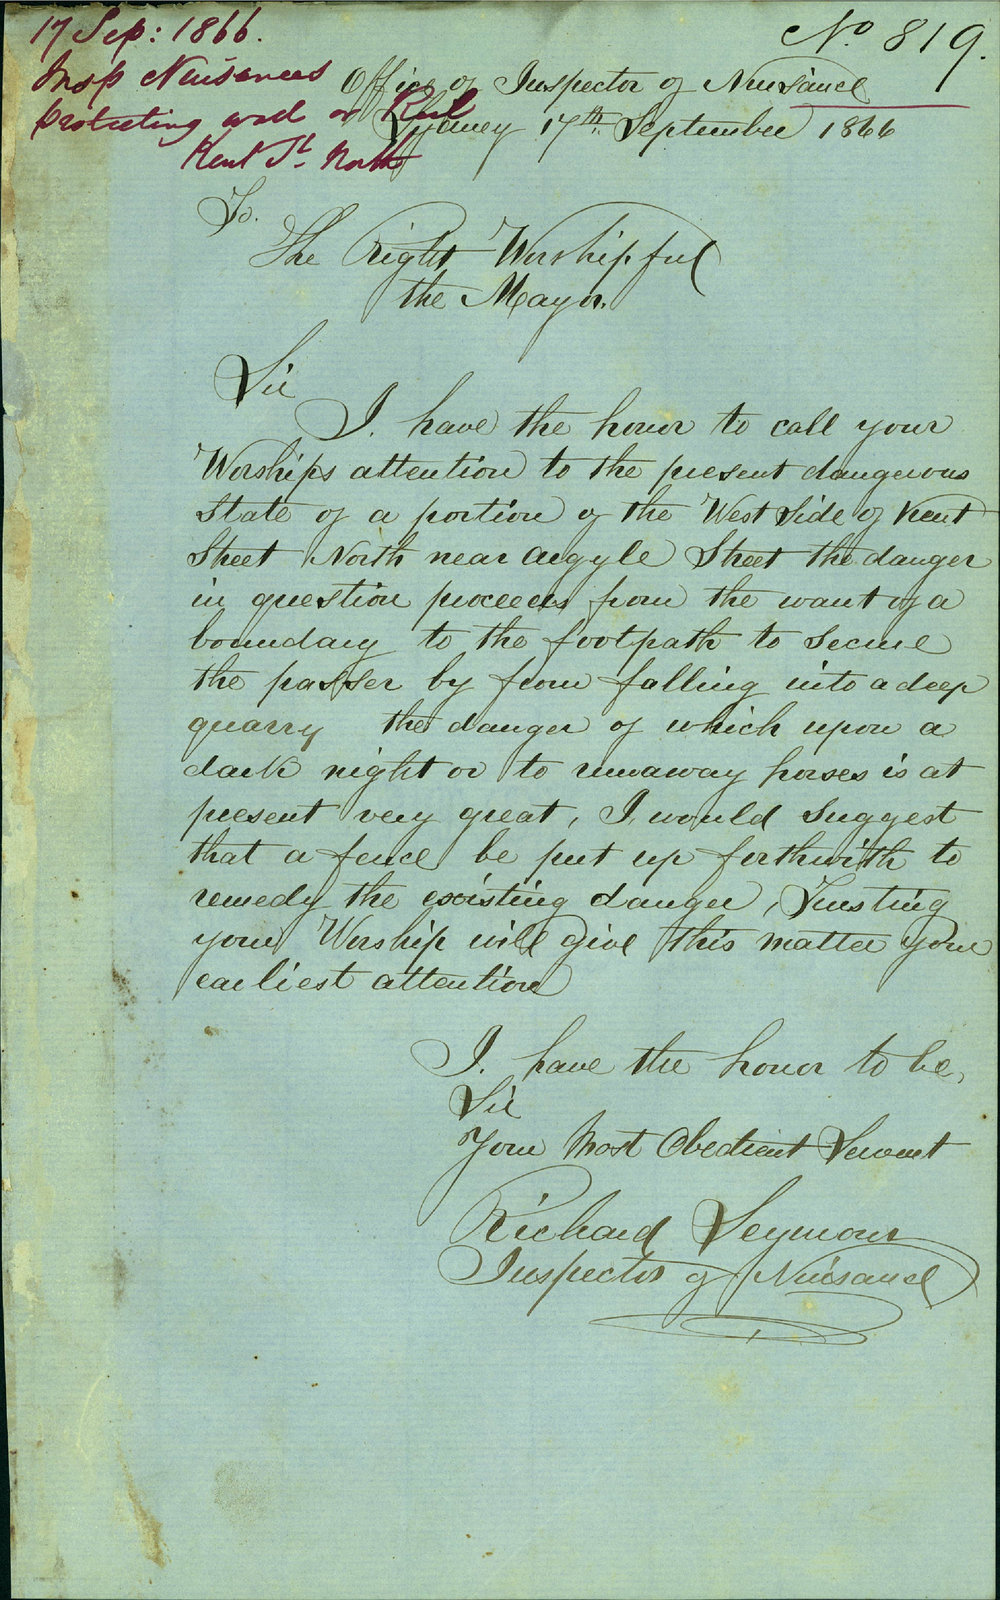 17 Sep: 1866.
Insp Nuisances
protecting wall or Rail
Kent St. North
No. 819.
Office of Inspector of Nuisance
Sydney 17th. September 1866
To.
The Right Worshipful
the Mayor.
Sir
I. have the honor to call your
Worships attention to the present dangerous
State of a portion of the West Side of Kent
Street North near Argyle Street the danger
in question proceeds from the want of a
boundary to the footpath to secure
the passer by from falling into a deep
quarry the danger of which upon a
dark night or to runaway horses is at
present very great, I, would suggest
that a fence be put up forthwith to
remedy the existing danger, Trusting
your Worship will give this matter your
earliest attention
I. have the honor to be,
Sir
Your Most Obedient Servant
Richard Seymour
Inspector of Nuisance